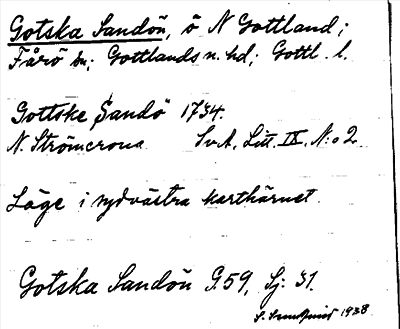 Gotska Sandön, ö N Gottland;
Fårö sn; Gottlands n. hd; Gottl. l.
Gottske Sandö 1734.
N. Strömcrona SvA, Litt. IX, N:o 2.
Läge i sydvästra karthörnet.
Gotska Sandön G.59, Sj: 31.
S. 1938